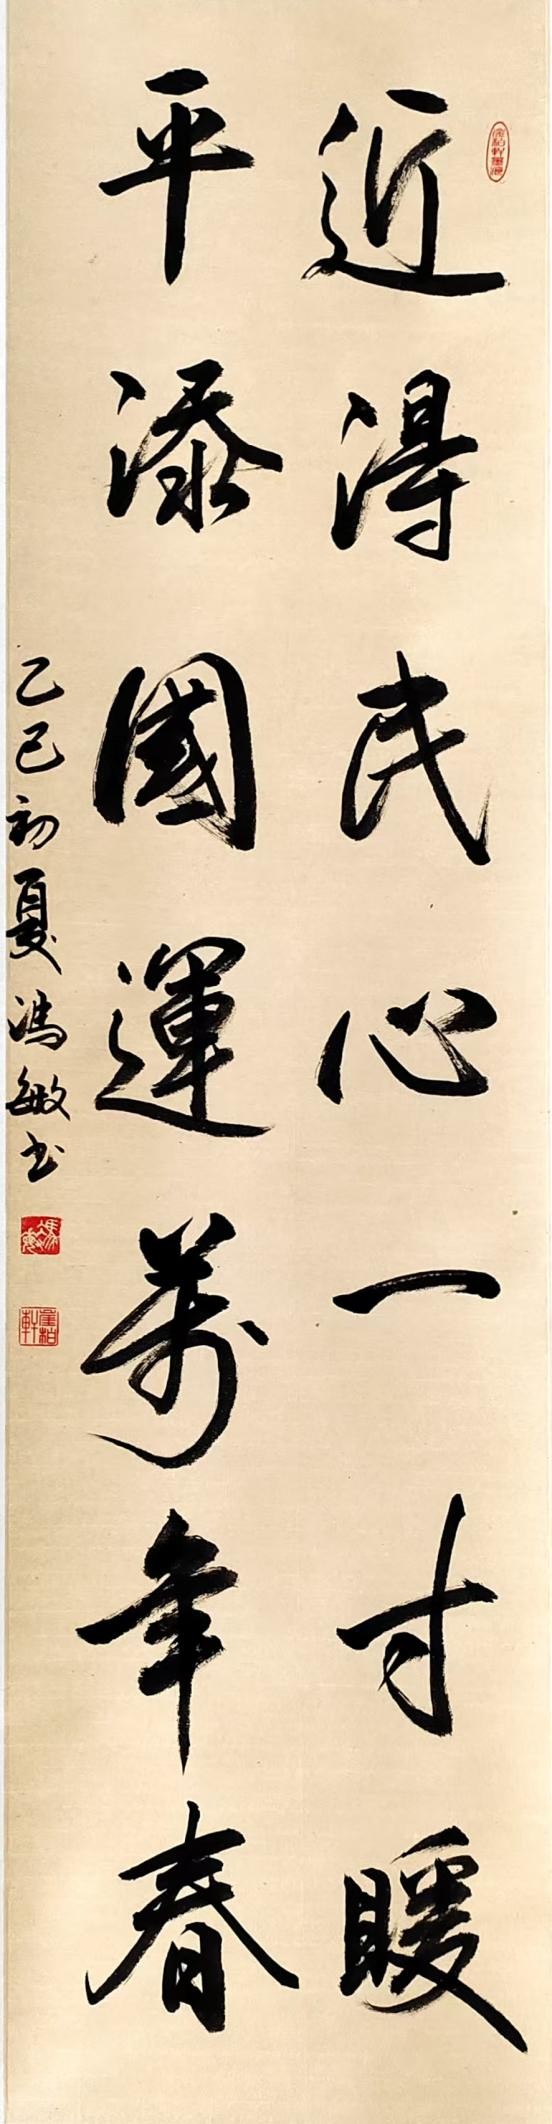 近得民心一寸暖
平添國運萬年春
乙巳初夏馮敏书